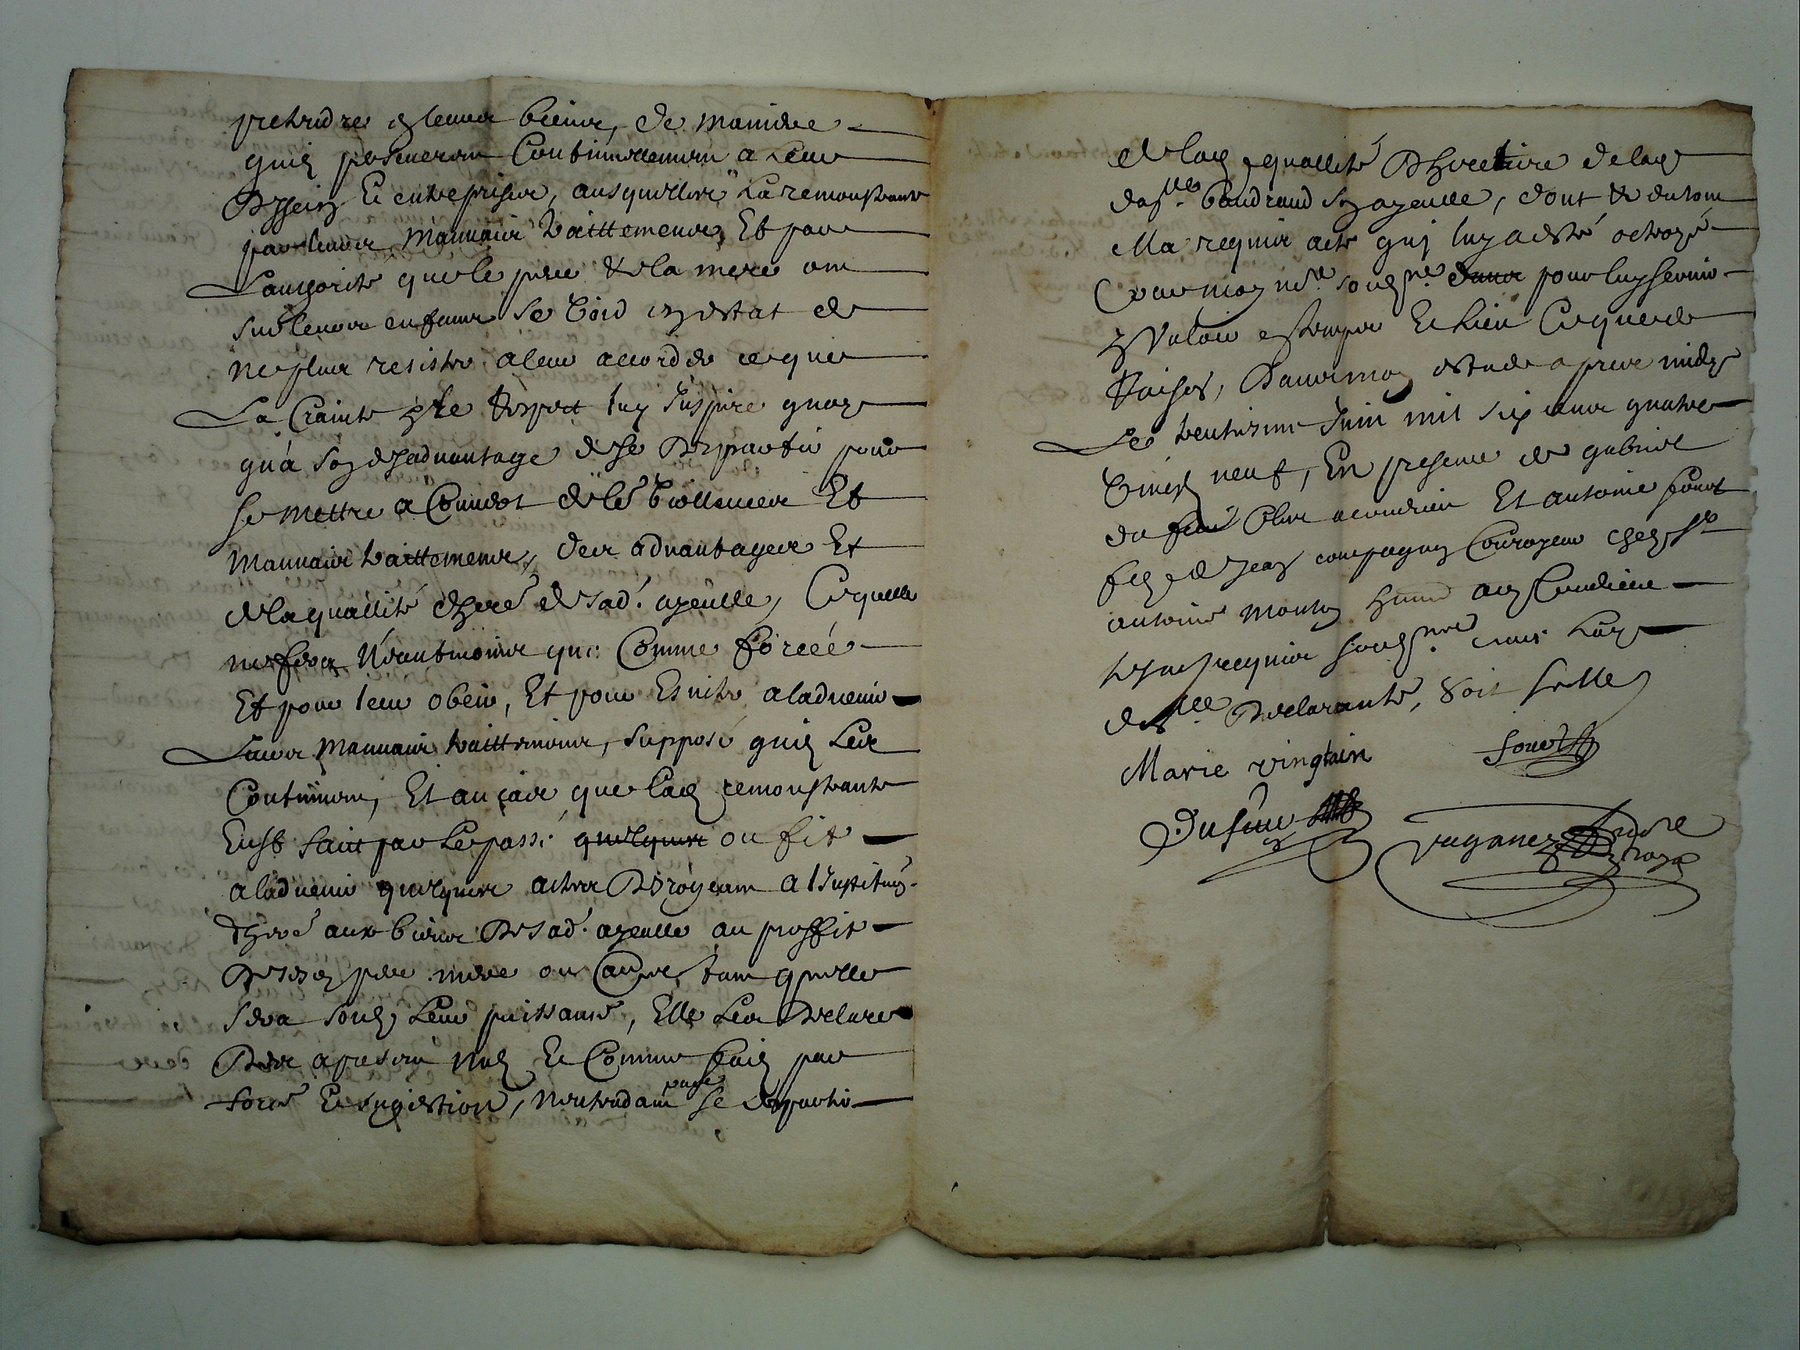 pretendre es leurs biens, de maniere
quilz persevereront Continuellement a leur
Dessein Et entreprises, ausquelles La remonstrante
par leurs Mauvais traittements Et par
Lauthorité que le pere & la mere ont
sur leurs enfants se void en estat de
ne plus resister a leur accorder ce que
La Crainte & le respect luy Inspire quoy
qu'a son desadvantage de se Despartir pour
se mettre a Couvert de les viollances Et
Mauvais traittements, des advantages Et
de la quallité d'here de sad. ayeulle, Ce quelle
ne fera Neantmoins que Comme forcée
Et pour leur obeir, Et pour Esviter a ladvenir
Leurs Mauvais traittements, supposé quilz Les
Continuent, Et au cas que lad remonstrante
Eust faict par Le passé quelques ou fit
a ladvenir quelques actes Derogeant a l'Institu͂on
d'here aux biens de sad. ayeulle au proffit
de sesd pere mere ou autres tant quelle
sera soubz Leur puissance, Elle Les Declare
Des a present nulz Et Comme faicts par
force Et sugestion, N'entendant pas se despartir
de lad quallité D'heretiere de lad
da.lle baudrand son ayeulle, dont & du tout
Ella requis acte quy luy a esté octroyé
Par moy no.re soubz.ne pour luy servir
& valoir en temps Et lieu Ce que de
Raison, a pres midy
Le trentiesme Juin mil six cents quatre
Vingtz neuf, En presence de gabriel
du Clerc a condrieu Et antoine fournel
filz de Jean compagnon Courroyeur chez Sr
antoine mouton aud Condrieu
tesmoingz requis soubz.nes avec Lad
da.lle Declarante, Soit
Marie vingtain